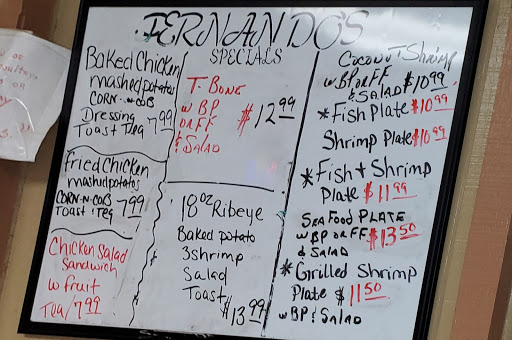 FERNANDO'S
SPECIALS
Baked Chicken
mashed potatos
CORN-N-COB
Dressing
Toast Tea 7.99
Fried Chicken
mashed potatos
CORN-N-COB
Toast & Tea 7.99
Chicken Salad
Sandwich
w fruit
Tea / 7.99
T. Bone
w/ BP
OR FF
& Salad
$12.99
18 oz Ribeye
Baked potato
3 shrimp
Salad
Toast $13.99
COCONUT Shrimp
w BP OR FF $10.99
& SALAD
* Fish Plate $10.99
Shrimp Plate $10.99
* Fish & Shrimp
Plate $11.99
SEAFOOD PLATE
w BP OR FF $13.50
& SALAD
* Grilled Shrimp
Plate $11.50
w BP & SALAD